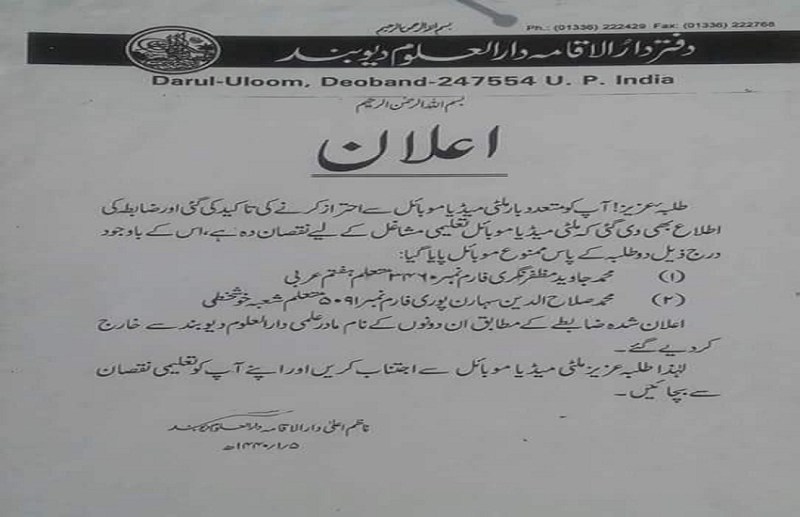 بسم اللہ الرحمن الرحیم
Ph.: (01336) 222429 Fax: (01336) 222768
دفتر دار الاقامہ دار العلوم دیوبند
Darul-Uloom, Deoband-247554 U. P. India
بسم اللہ الرحمن الرحیم
اعلان
طلبۂ عزیز! آپ کو متعدد بار ملٹی میڈیا موبائل سے احتراز کرنے کی تاکید کی گئی اور ضابطہ کی
اطلاع بھی دی گئی کہ ملٹی میڈیا موبائل تعلیمی مشاغل کے لیے نقصان دہ ہے، اس کے باوجود
درج ذیل دو طلبہ کے پاس ممنوع موبائل پایا گیا:
(۱) محمد جاوید مظفر نگری فارم نمبر ۳۴۶۰ متعلم ہفتم عربی
(۲) محمد صلاح الدین سہارن پوری فارم نمبر ۵۰۹۱ متعلم شعبہ خوشخطی
اعلان شدہ ضابطے کے مطابق ان دونوں کے نام مادر علمی دار العلوم دیوبند سے خارج
کردیے گئے۔
لہٰذا طلبہ عزیز ملٹی میڈیا موبائل سے اجتناب کریں اور اپنے آپ کو تعلیمی نقصان
سے بچائیں۔
ناظم اعلیٰ دار الاقامہ دار العلوم دیوبند
۱۴۴۰/۱/۵ھ